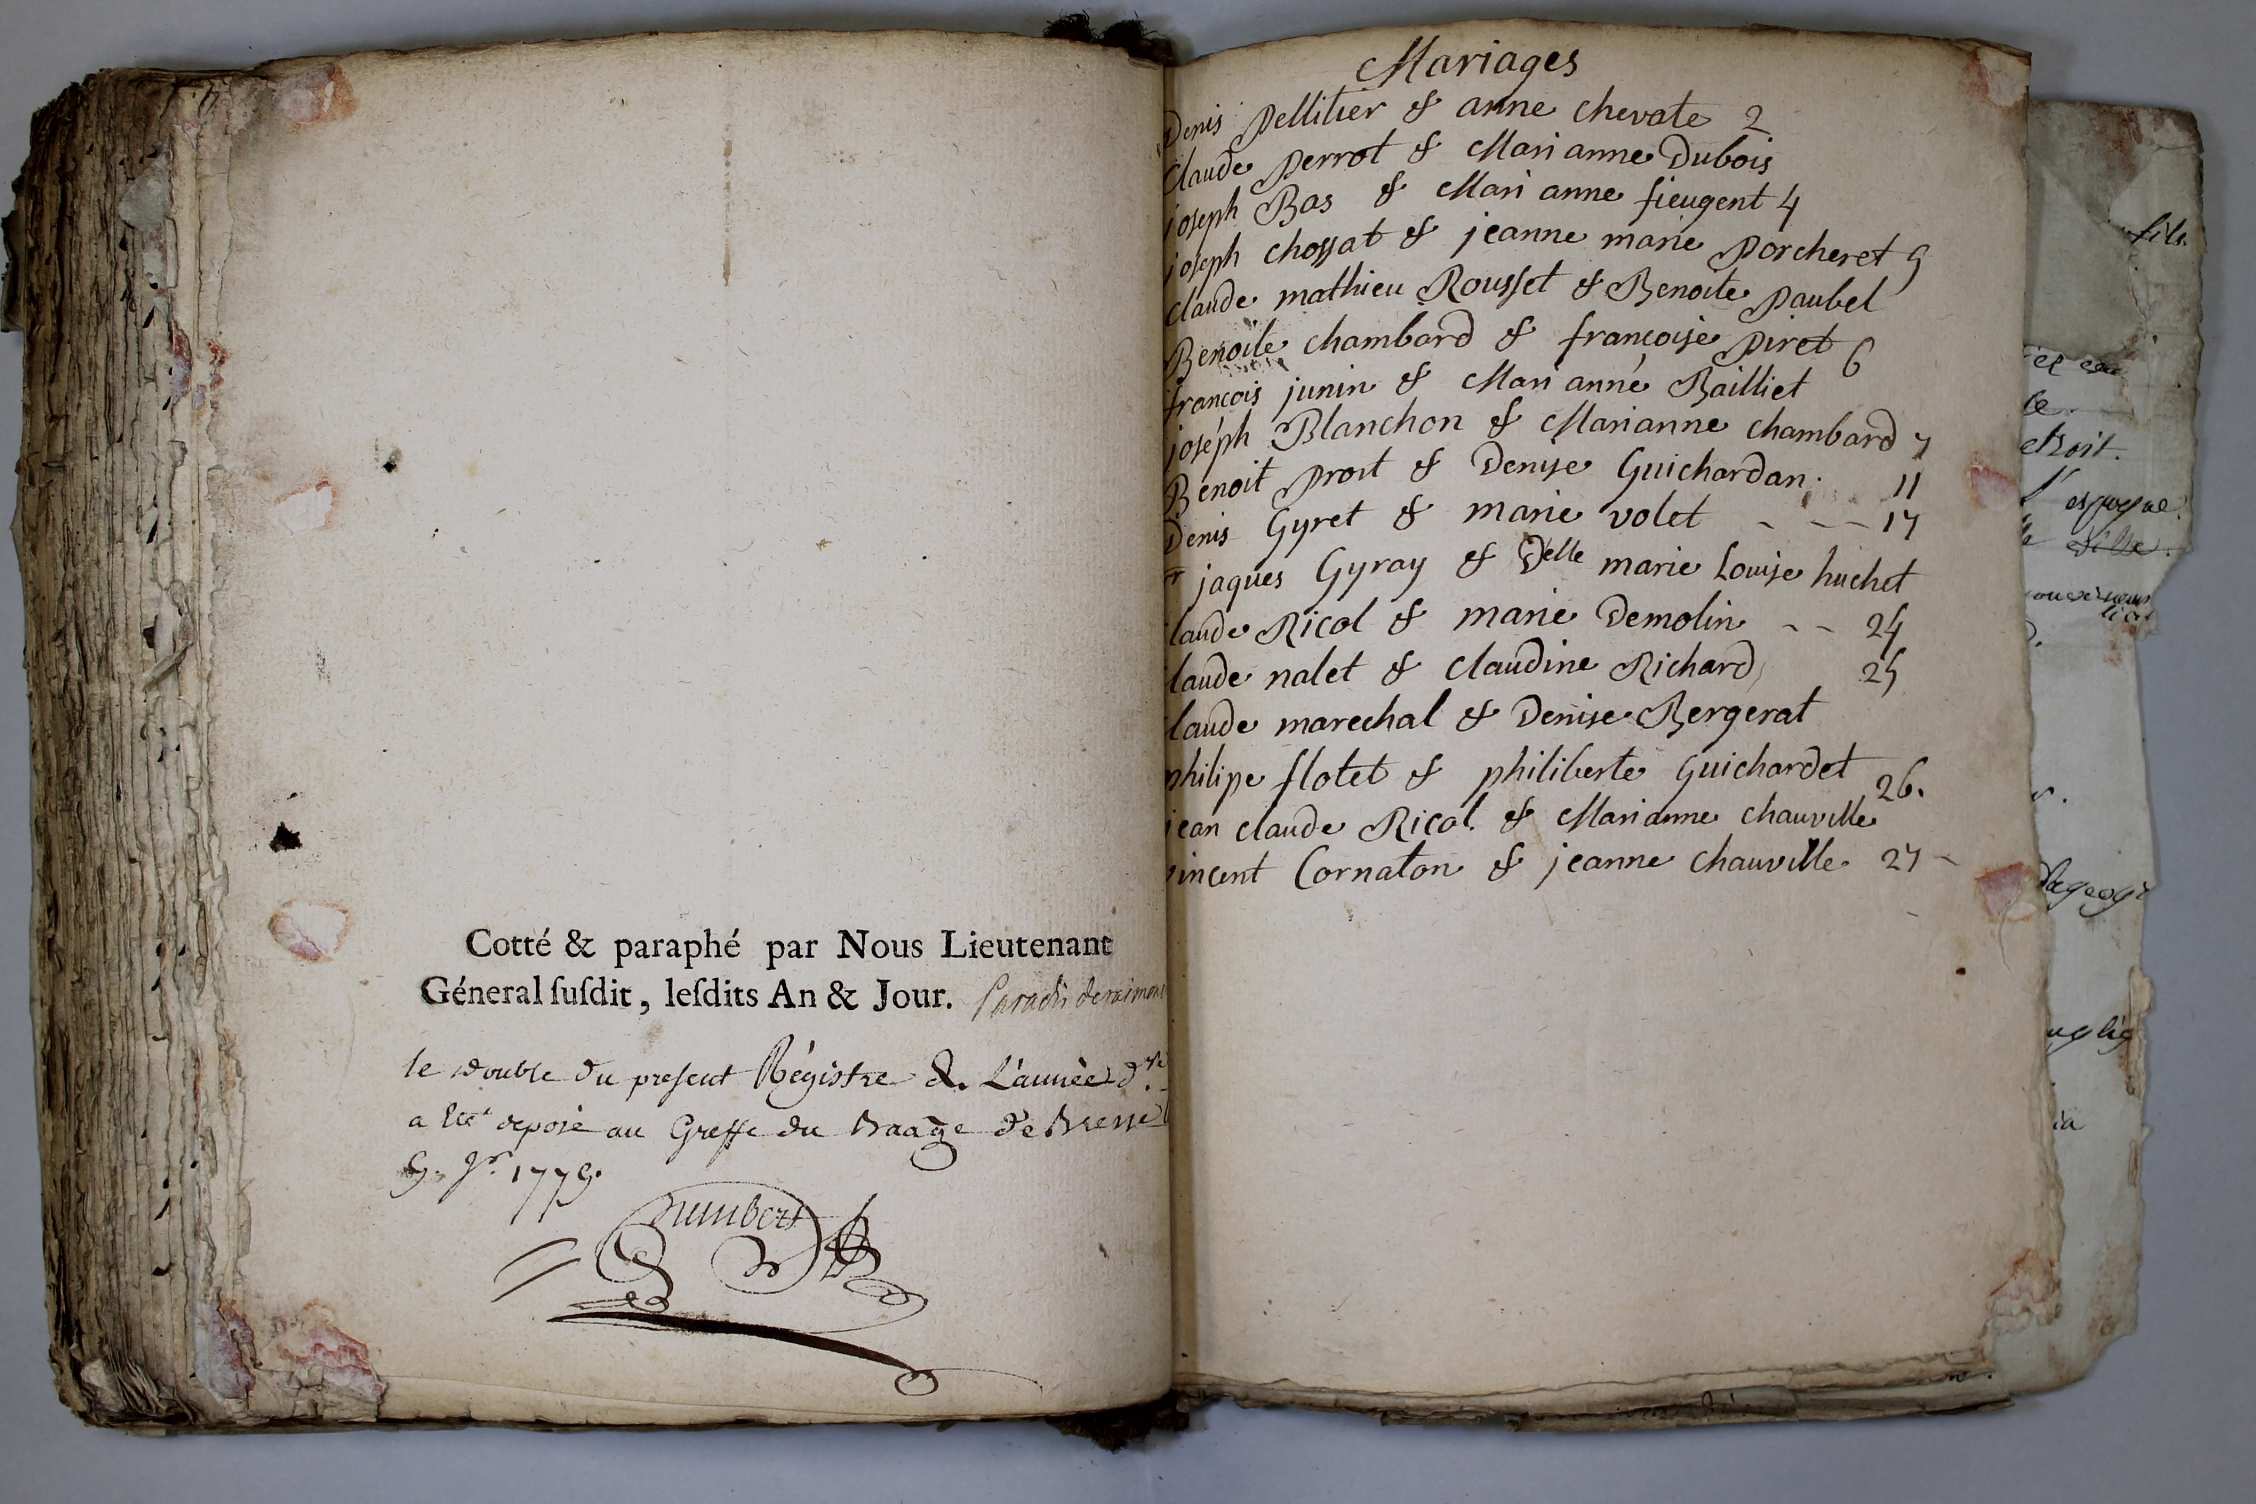 Cotté & paraphé par Nous Lieutenant
Géneral ſuſdit, leſdits An & Jour.
le double du present Régistre de L'année d.re
a été deposé au Greffe du Baage de Bresse
1779.
humbert
Mariages
Denis Pellitier & anne chevate 2
Claude Perrot & Mari anne Dubois
joseph Bas & Mari anne fieugent 4
joseph chossat & jeanne marie Porcheret 5
claude mathieu Rousset & Benoite Paubel
Benoite chambard & francoise Piret 6
francois junin & Mari anne Bailliet
joseph Blanchon & Marianne chambard 7
Benoit Prost & Denise Guichardan. 11
Denis Gyret & marie volet - - - 17
r jaques Gyray & Delle marie Louise huchet
laude Ricol & marie Demolin - - 24
laude nalet & claudine Richard 25
laude marechal & Denise Bergerat
philipe flotet & philiberte Guichardet
26.
jean claude Ricol & Marianne chauville
vincent Cornaton & jeanne chauville 27 -
fils
etroit.